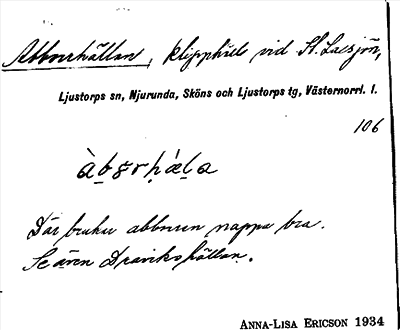 Abborrhällan, klipphäll vid St. Laxsjön,
Ljustorps sn, Njurunda, Sköns och Ljustorps tg, Västernorrl. l.
106
Där brukar abborren nappa bra.
Se även Draviks hällan.
ANNA-LISA ERICSON 1934